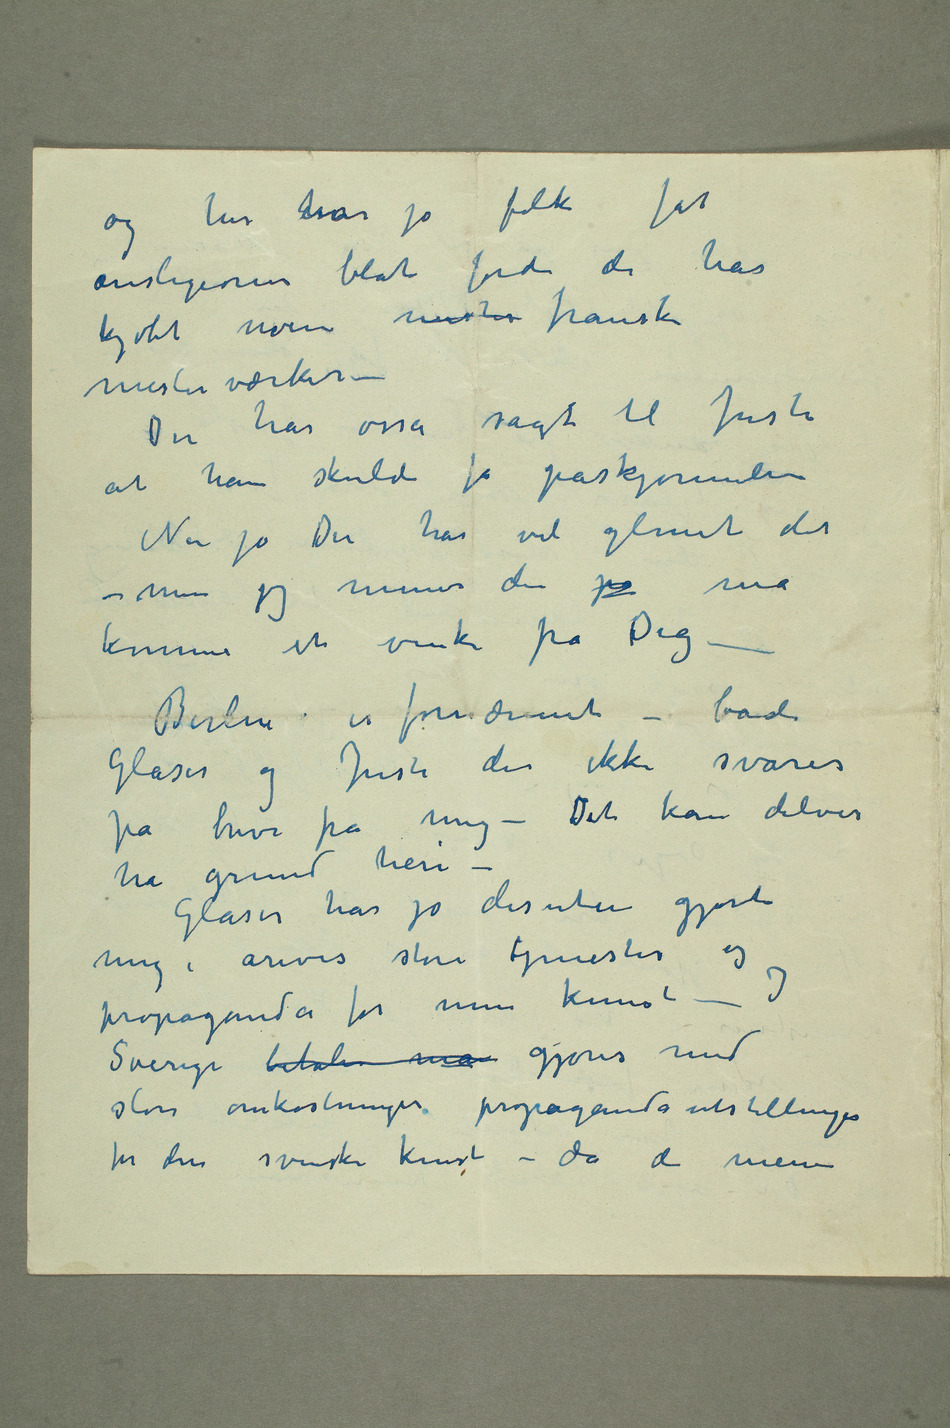 og her har jo folk fåt
æresligioner blot fordi de har
kjøbt noen mester franske
mesterværker –
Du har osså sagt til Justi
at han skulde få påskjønnelse
Nu jo Du har vel glemt det
– men jeg mener der jo må
komme et vink fra Dig –
Berlin er fornærmet – både
Glaser og Justi der ikke svarer
på breve fra mig – Det kan delvis
ha grund heri –
Glaser har jo desuten gjort
mig i årevis store tjenester og
propaganda for min kunst – I
Sverige betaler man gjøres med
store omkostninger propagandautstillinger
for den svenske kunst – da de mener